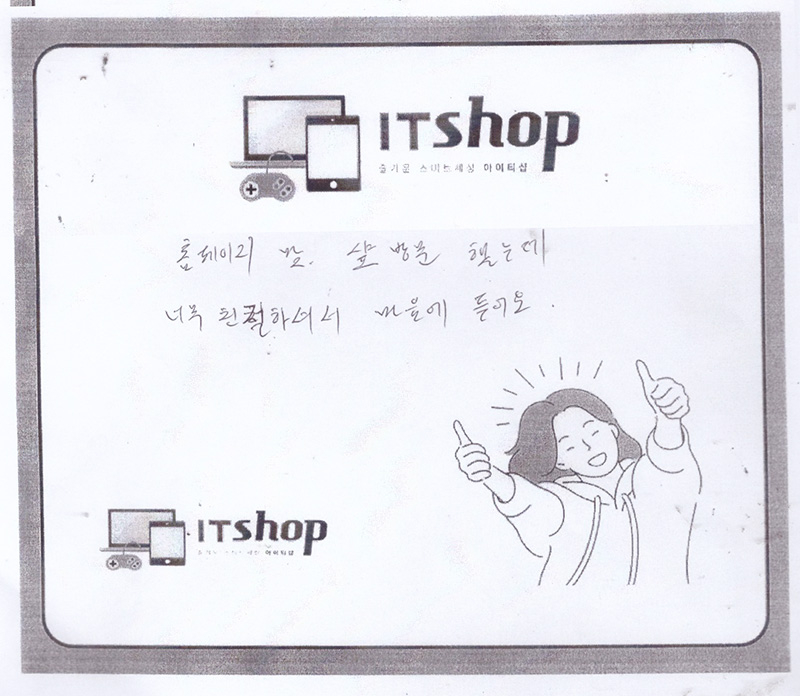 ITshop
즐거운 스마트세상 아이티샵
홈페이지 보고, 샾 방문 했는데
너무 친절하셔서 마음에 들어요.
ITshop
즐거운 스마트세상 아이티샵